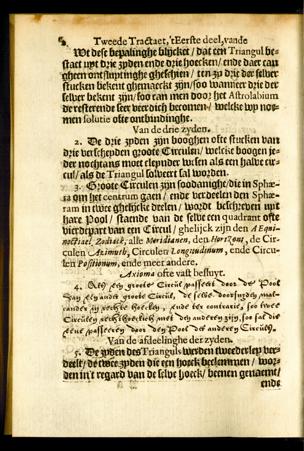 2. Tweede Tractaet, 'tEerste deel, vande
Wt dese bepalinghe blijcket / dat een Triangul be-
staet uyt drie zyden ende drie hoecken / ende daer can
gheen ontsluytinghe gheschien / ten zy drie der selver
stucken bekent ghemaeckt zijn / soo wanneer drie der
selver bekent zijn / soo can men door het Astrolabium
de resterende seer vierdich becomen / welcke wy noe-
men solutie ofte ontbindinghe.
Van de drie zyden.
2. De drie zyden zijn booghen ofte stucken van
drie verscheyden groote Circulen / welcke booghen je-
der nochtans moet cleynder wesen als een halve cir-
cul / als de Triangul solveert sal worden.
3. Groote Circulen zijn soodanighe / die in Sphæ-
ra om het centrum gaen / ende verdeelen den Sphæ-
ram in twee ghelijcke deelen / wordt beschreven uyt
hare Pool / staende van de selve een quadrant ofte
vierdepart van een Circul / ghelijck zijn den Æqui-
noctiael, Zodiack, alle Meridianen, den Horizont, de Cir-
culen Azimuth, Circulen Longitudinum, ende Circu-
len Positionum, ende meer andere.
Axioma ofte vast besluyt.
4. Als een groote Circul passeert door de Pool
van een ander groote Circul, de selve doorsnyden mal-
cander in rechte hoecken, ende ter contrarie, soo twee
Circulen rechthoeckich met den anderen zijn, soo sal die
eene passeeren door den Pool des anderen Circuls.
Van de afdeelinghe der zyden.
5. De zyden des Trianguls werden tweederley ver-
deelt / de twee zyden die een hoeck beclemmen / wor-
den in't regard van de selve hoeck / beenen genaemt /
ende